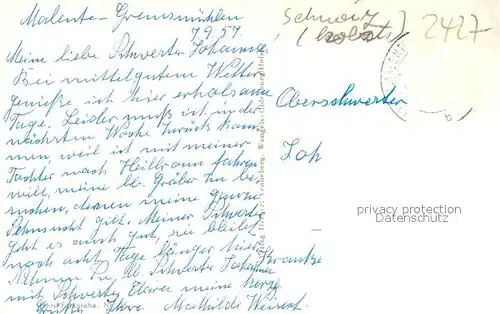 Malente-Gremsmühlen
7.9.57.
Meine liebe Schwester Johanna!
Bei mittelgutem Wetter
genieße ich hier erholsame
Tage. Leider muß ich in der
nächsten Woche zurück kom-
men, weil ich mit meiner
Tochter nach Heilbronn fahren
will, meine lb. Gräber zu be-
suchen, denen meine ganze
Sehnsucht gilt. Meiner Schwester
geht es auch gut, sie bleibt
noch acht Tage länger hier.
Nehmen Sie, lb. Schwester Johanna
mit Schwester Klara meine herzl.
Grüße Ihre Mathilde Weisert.
Schweiz
2427
Oberschwester
Joh
Kranke
privacy protection
Datenschutz